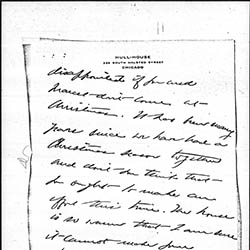 HULL-HOUSE
335 SOUTH HALSTED STREET
CHICAGO
disappointed if you and
Marcet don't come at
Christmas. It has been many
years since we have had a
Christmas season together
and don't you think that
we ought to make an
effort this time. The house
is so warm that I am sure
it cannot make you